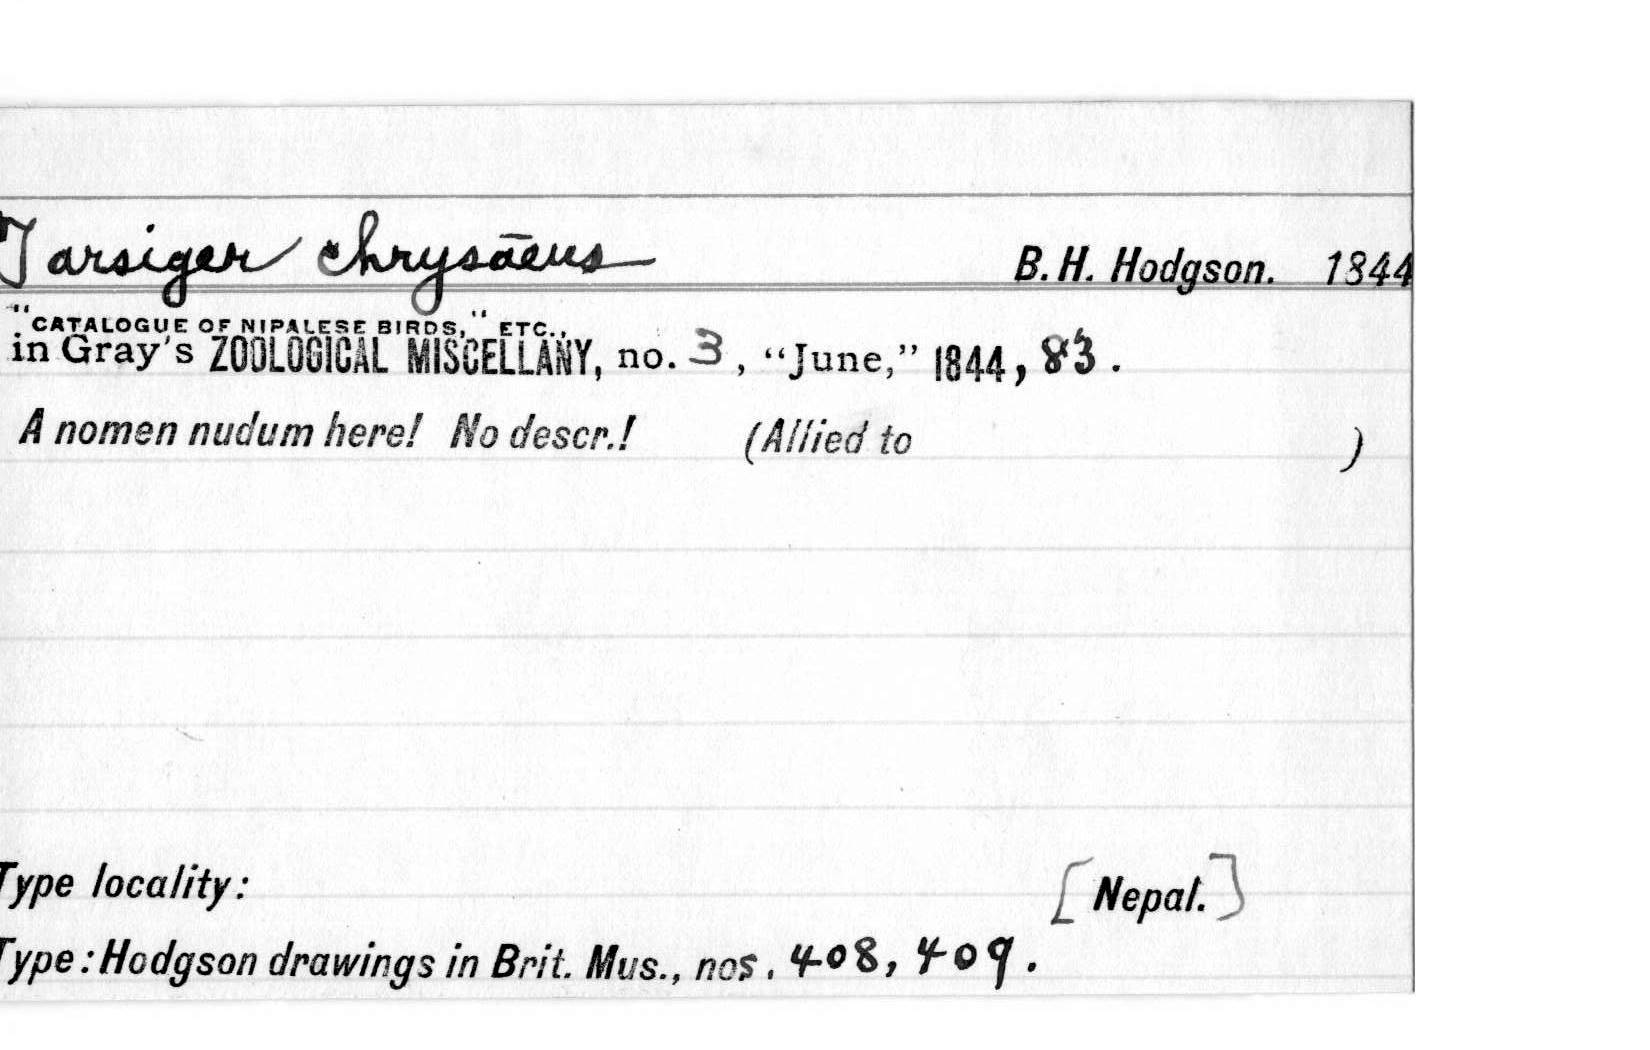 Tarsiger chrysāeus B. H. Hodgson. 1844
"CATALOGUE OF NIPALESE BIRDS," ETC.,
in Gray's ZOOLOGICAL MISCELLANY, no. 3, "June," 1844, 83.
A nomen nudum here! No descr.! (Allied to )
Type locality: [Nepal.]
Type: Hodgson drawings in Brit. Mus., nos. 408, 409.